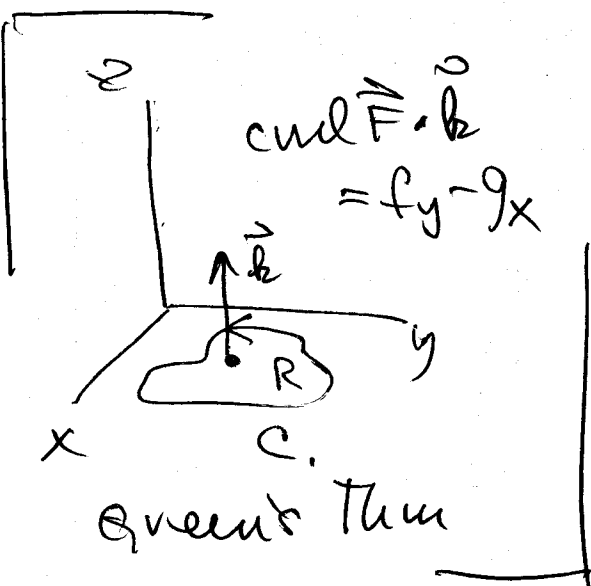 z
curl F⃗ · k⃗
= fy - gx
k⃗
y
R
x
C.
Green's Thm